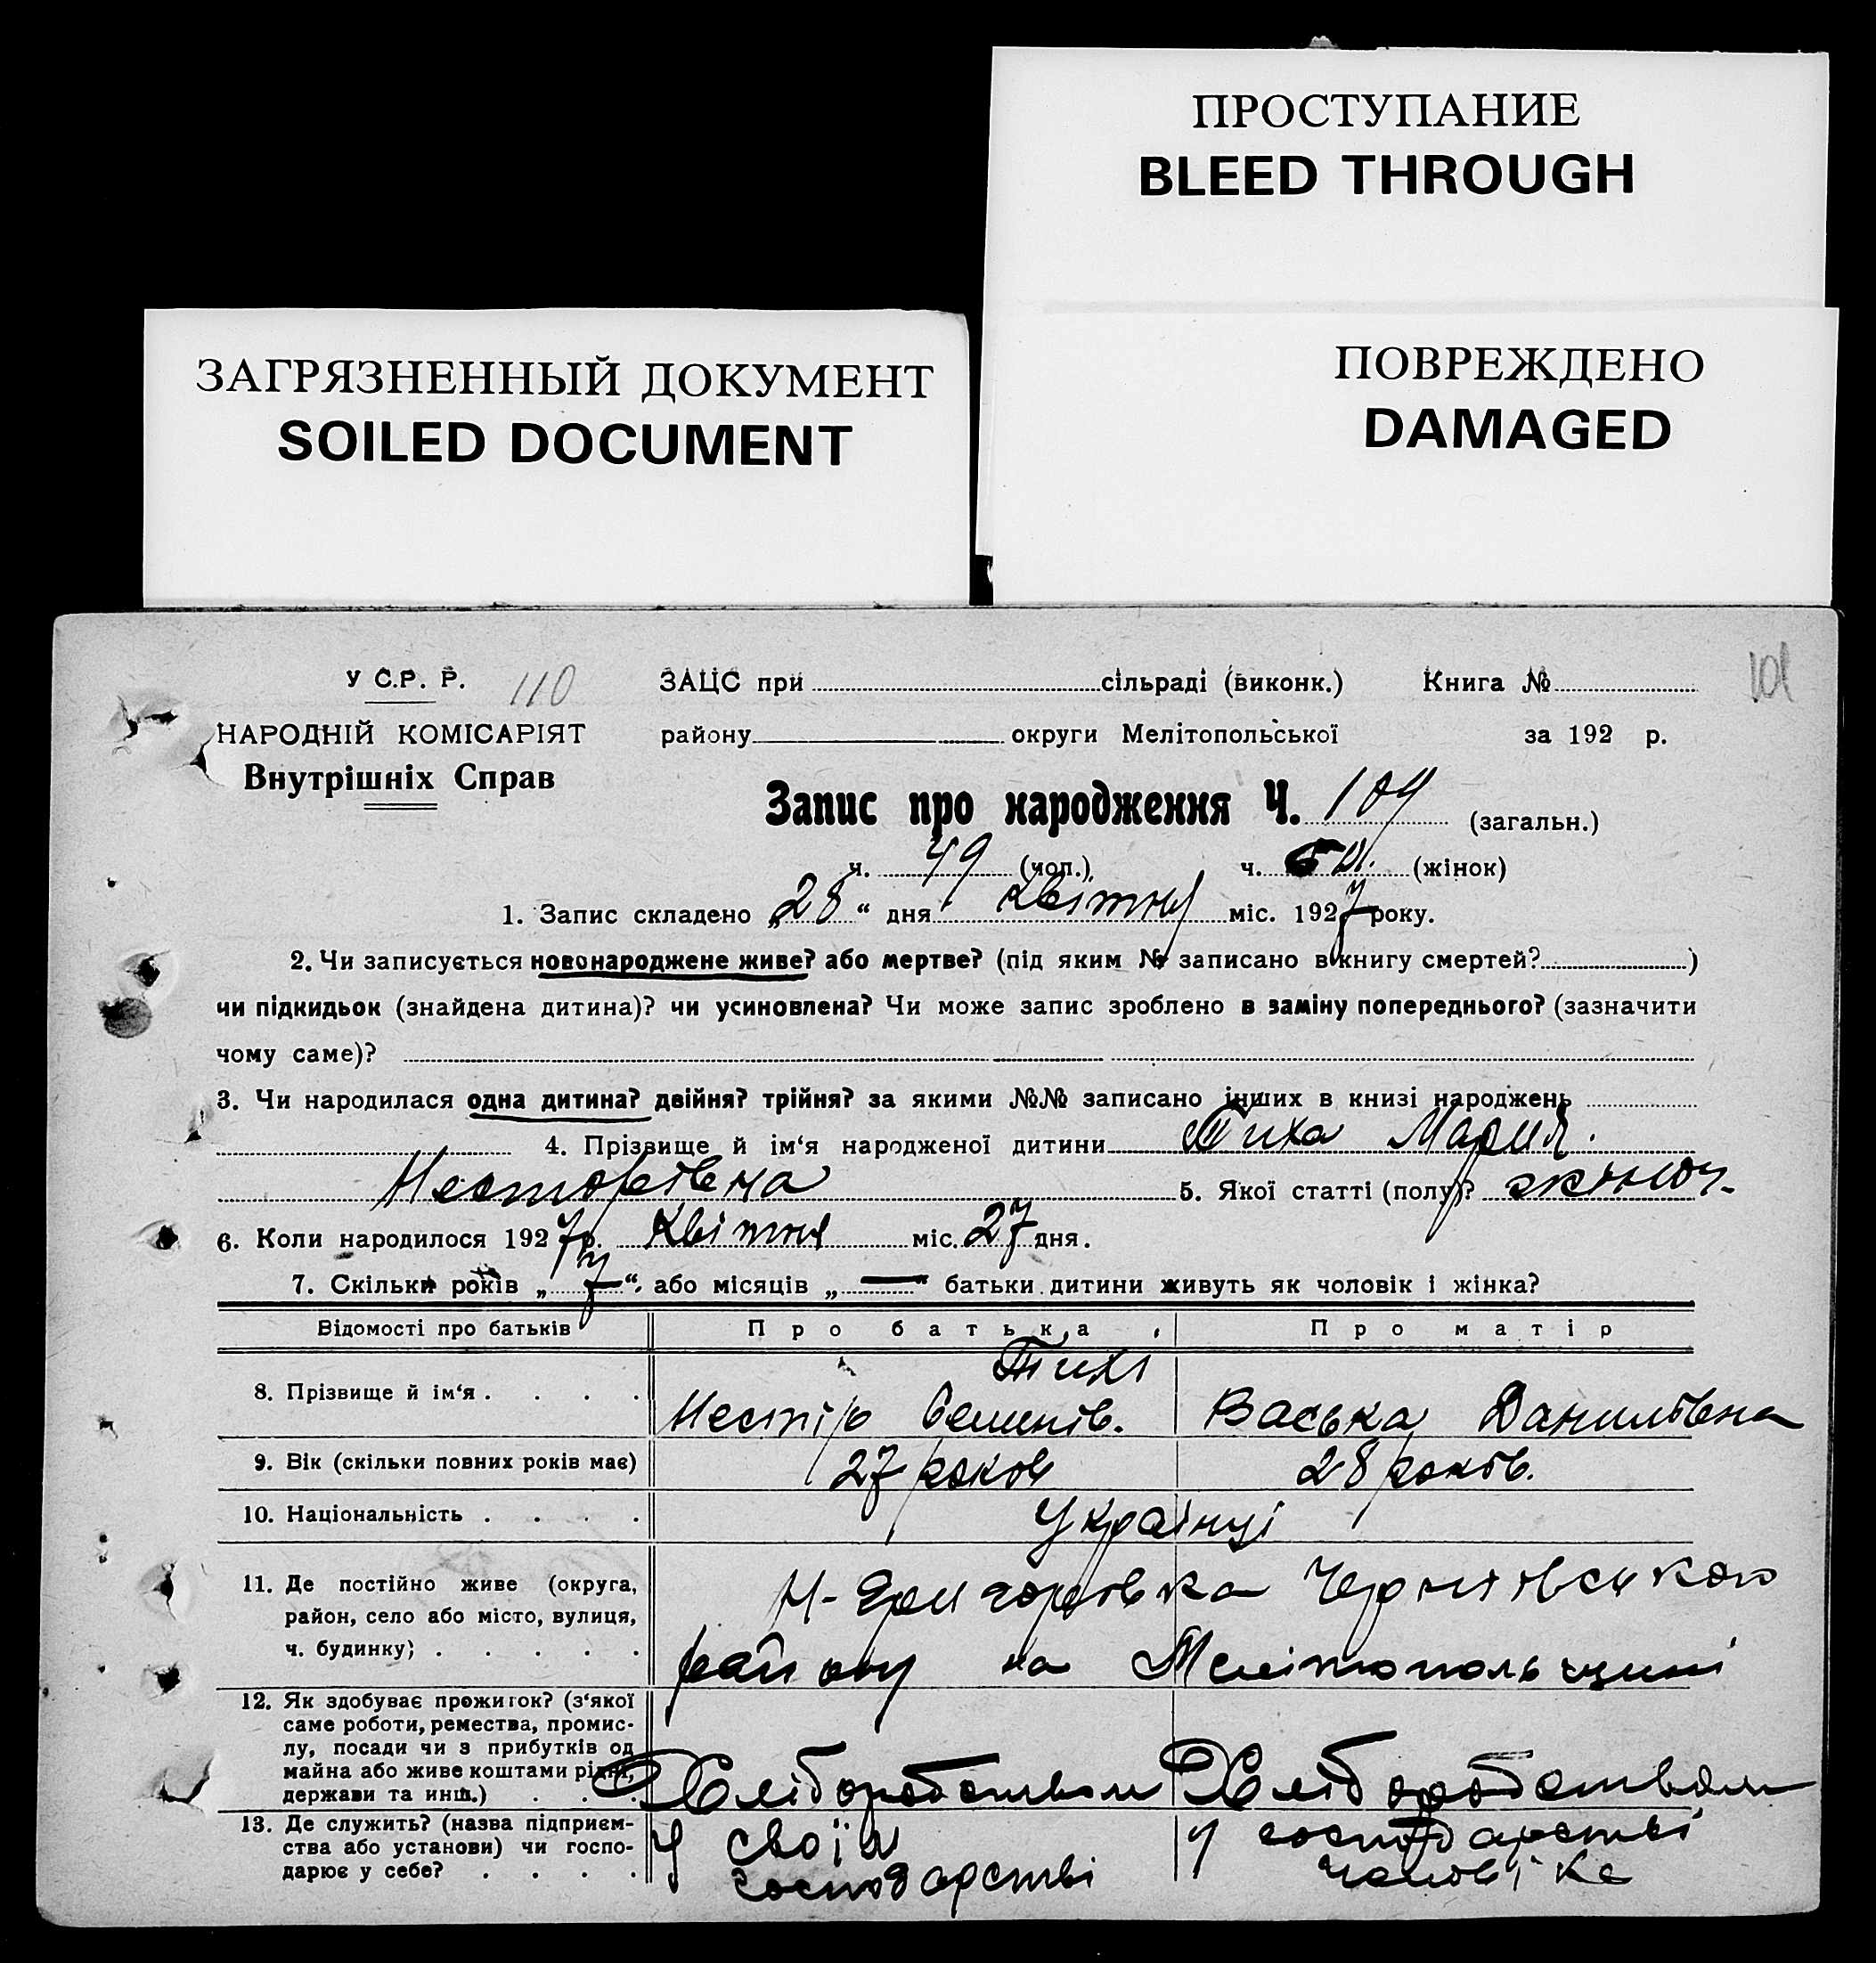 ПРОСТУПАНИЕ
BLEED THROUGH
ЗАГРЯЗНЕННЫЙ ДОКУМЕНТ
SOILED DOCUMENT
ПОВРЕЖДЕНО
DAMAGED
У С.Р. Р. 110
НАРОДНІЙ КОМІСАРІЯТ
Внутрішніх Справ
ЗАЦС при сільраді (виконк.) Книга № 101
району округи Мелітопольської за 192 р.
Запис про народження Ч. 109 (загальн.)
ч. 49 (чол.) ч. (жінок)
1. Запис складено „28“ дня Квітня міс. 1927 року.
2. Чи записується новонароджене живе? або мертве? (під яким № записано в книгу смертей? )
чи підкидьок (знайдена дитина)? чи усиновлена? Чи може запис зроблено в заміну попереднього? (зазначити
чому саме)?
3. Чи народилася одна дитина? двійня? трійня? за якими №№ записано інших в книзі народжень
4. Прізвище й ім‘я народженої дитини Тиха Мария.
Несторівна 5. Якої статті (полу)? жіноч.
6. Коли народилося 1927 р. Квітня міс. 27 дня.
7. Скільки років „7“ або місяців „—“ батьки дитини живуть як чоловік і жінка?
Відомості про батьків Про батька Про матір
8. Прізвище й ім‘я . . . . Тихі
Нестір Семенів. Васька Данилівна
9. Вік (скільки повних років має) 27 років 28 років.
10. Національність . . . . Українці
11. Де постійно живе (округа,
район, село або місто, вулиця,
ч. будинку) . . . . .
Черниговського
району на Мелітопольщині
12. Як здобуває прожиток? (з‘якої
саме роботи, ремества, промис-
лу, посади чи з прибутків од
майна або живе коштами рідні,
держави та инш.) . . .
Хліборобством Хліборобством
13. Де служить? (назва підприєм-
ства або установи) чи госпо-
дарює у себе? . . . .
У своїм
господарстві
у господарстві
чоловіка